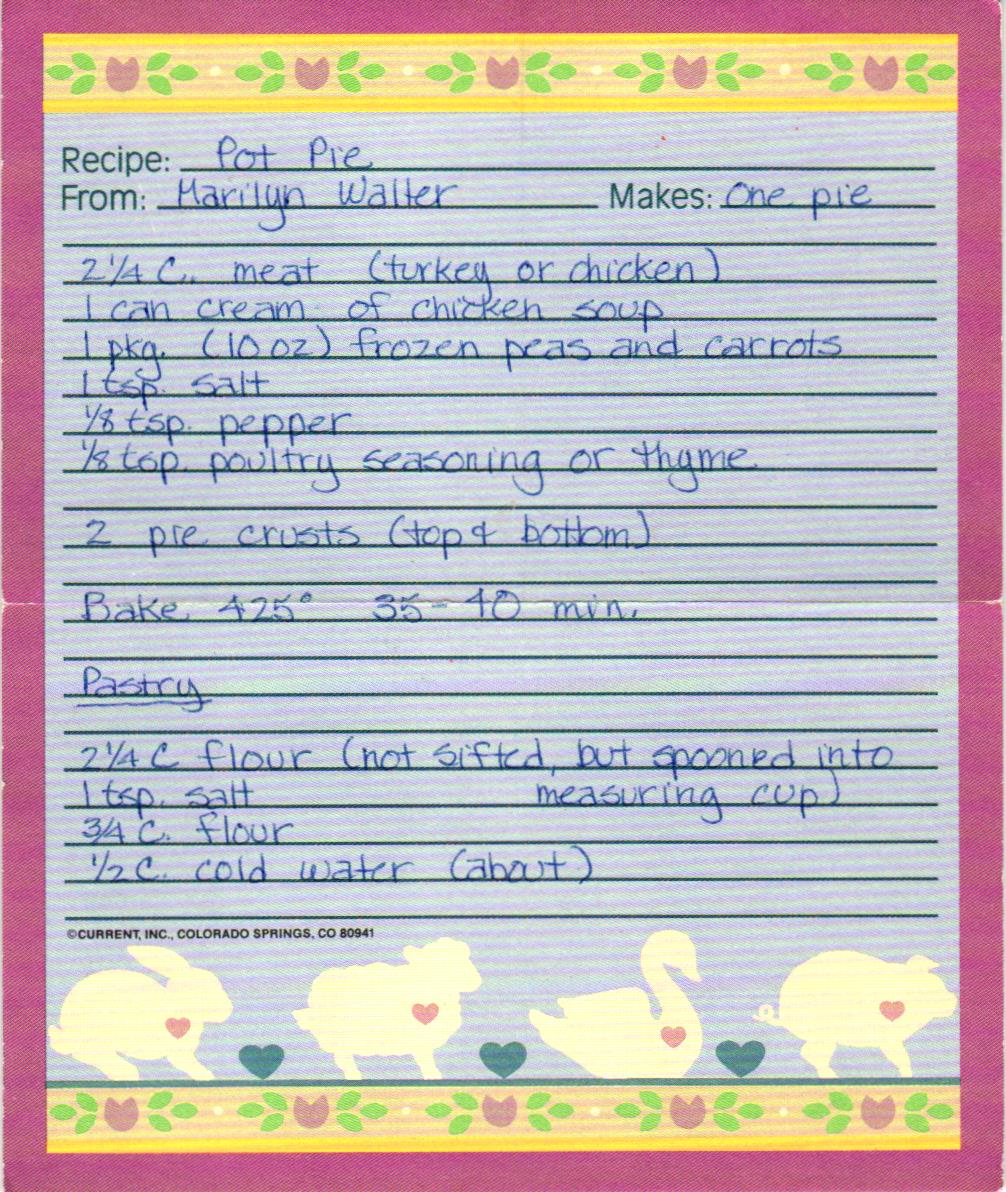 Recipe: Pot Pie
From: Marilyn Walter Makes: One pie
2 1/4 C. meat (turkey or chicken)
1 can cream of chicken soup
1 pkg. (10 oz) frozen peas and carrots
1 tsp. salt
1/8 tsp. pepper
1/8 tsp. poultry seasoning or thyme
2 pie crusts (top & bottom)
Bake 425° 35-40 min.
Pastry
2 1/4 C flour (not sifted, but spooned into
1 tsp. salt measuring cup)
3/4 C. flour
1/2 C. cold water (about)
©CURRENT, INC., COLORADO SPRINGS, CO 80941